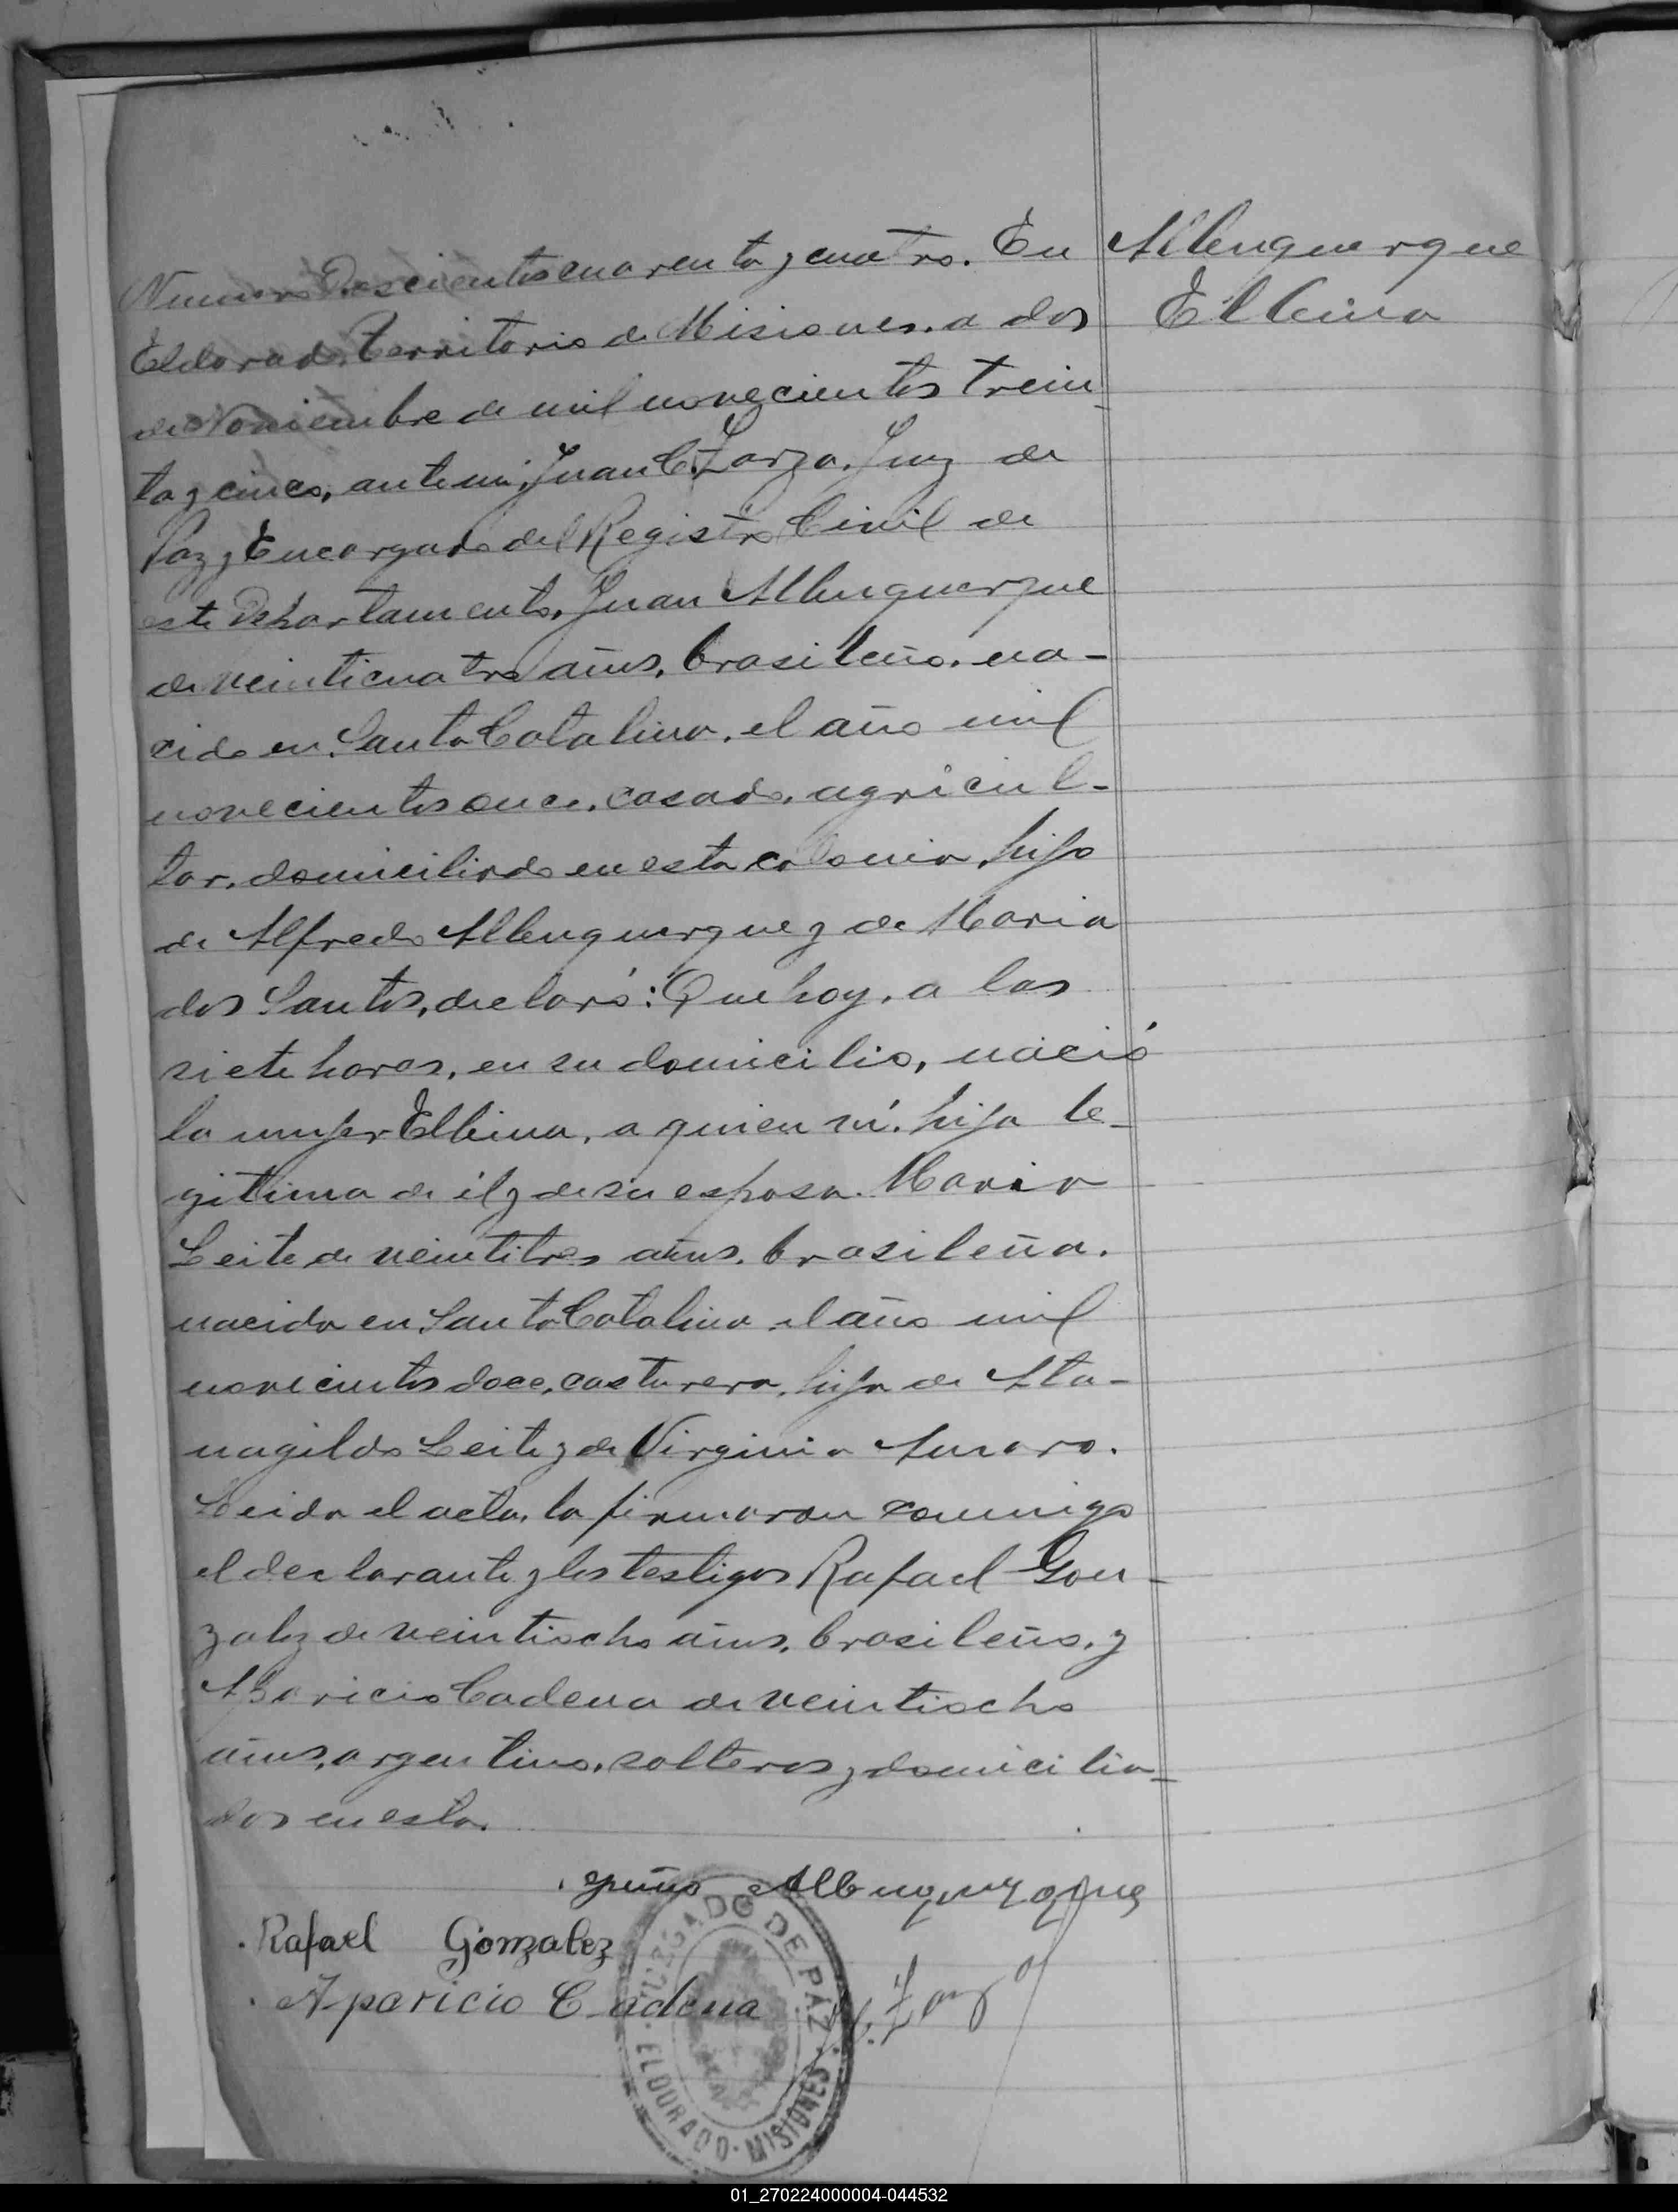 Numero Doscientos cuarenta y cuatro. En
Albuquerque
Elbina
Eldorado, Territorio de Misiones, a dos
de Noviembre de mil novecientos trein
ta y cinco, ante mi, Juan C. Zarza, Juez de
Paz y Encargado del Registro Civil de
este Departamento, Juan Albuquerque
de veinticuatro años, brasileño, na-
cido en Santa Catalina, el año mil
novecientos once, casado, agricul-
tor, domiciliado en esta colonia, hijo
de Alfredo Albuquerque y de Maria
dos Santos, declaró: Que hoy, a las
siete horas, en su domicilio, nació
la mujer Elbina, a quien ví, hija le-
gitima de él y de su esposa Maria
Leite de veintitres años, brasileña,
nacida en Santa Catalina el año mil
novecientos doce, costurera, hija de Ata-
nagildo Leite y de Virginia Amaro.
Leida el acta, la firmaron conmigo
el declarante y los testigos Rafael Gon-
zalez de veintiocho años, brasileño, y
Aparicio Cadena de veintiocho
años, argentino, solteros y domicilia-
dos en esta.
Albuquerque
Rafael Gonzalez
Aparicio Cadena
C. Zarza
JUZGADO DE PAZ
ELDORADO - MISIONES
01_270224000004-044532